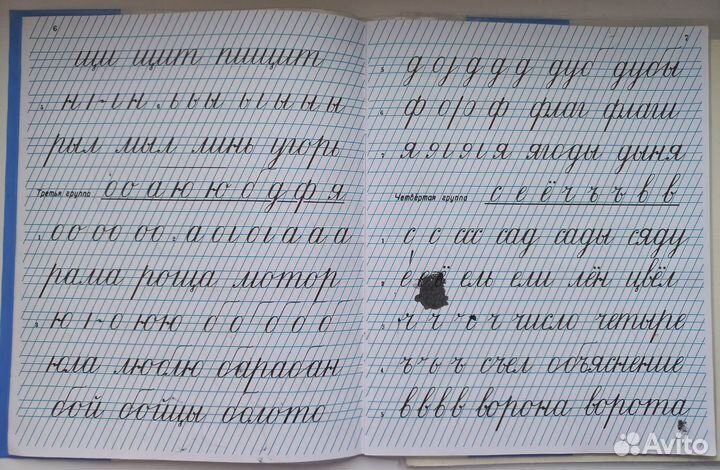 6
щи щит пищит
н ı-ı н ь ьы ы ы ы ы
рыл мыл линь угорь
Третья группа о о а ю ю б д ф я
о о о о о о а о ı о ı а а а
рама роща мотор
ю ı-о ю ю о б о б о б
юла люблю барабан
бой бойцы болото
7
д о ȷ д д д дуб дубы
ф о ȷ о ф флаг флаги
я я ı я ı я ягоды дыня
Четвёртая группа с е ё ч ъ ъ в в
с с ссс сад сады сяду
ё ель ели лён цвёл
ч ч ч ч число четыре
ъ ъ ъ съел объяснение
в в в в ворона ворота
Avito